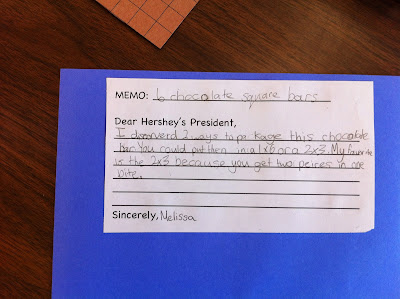 MEMO: 6 chocolate square bars
Dear Hershey's President,
I discoverd 2 ways to pa kage this chocolate
bar. You could put then in a 1x6 or a 2x3. My favorite
is the 2x3 because you get two peices in one
bite.
Sincerely, Melissa